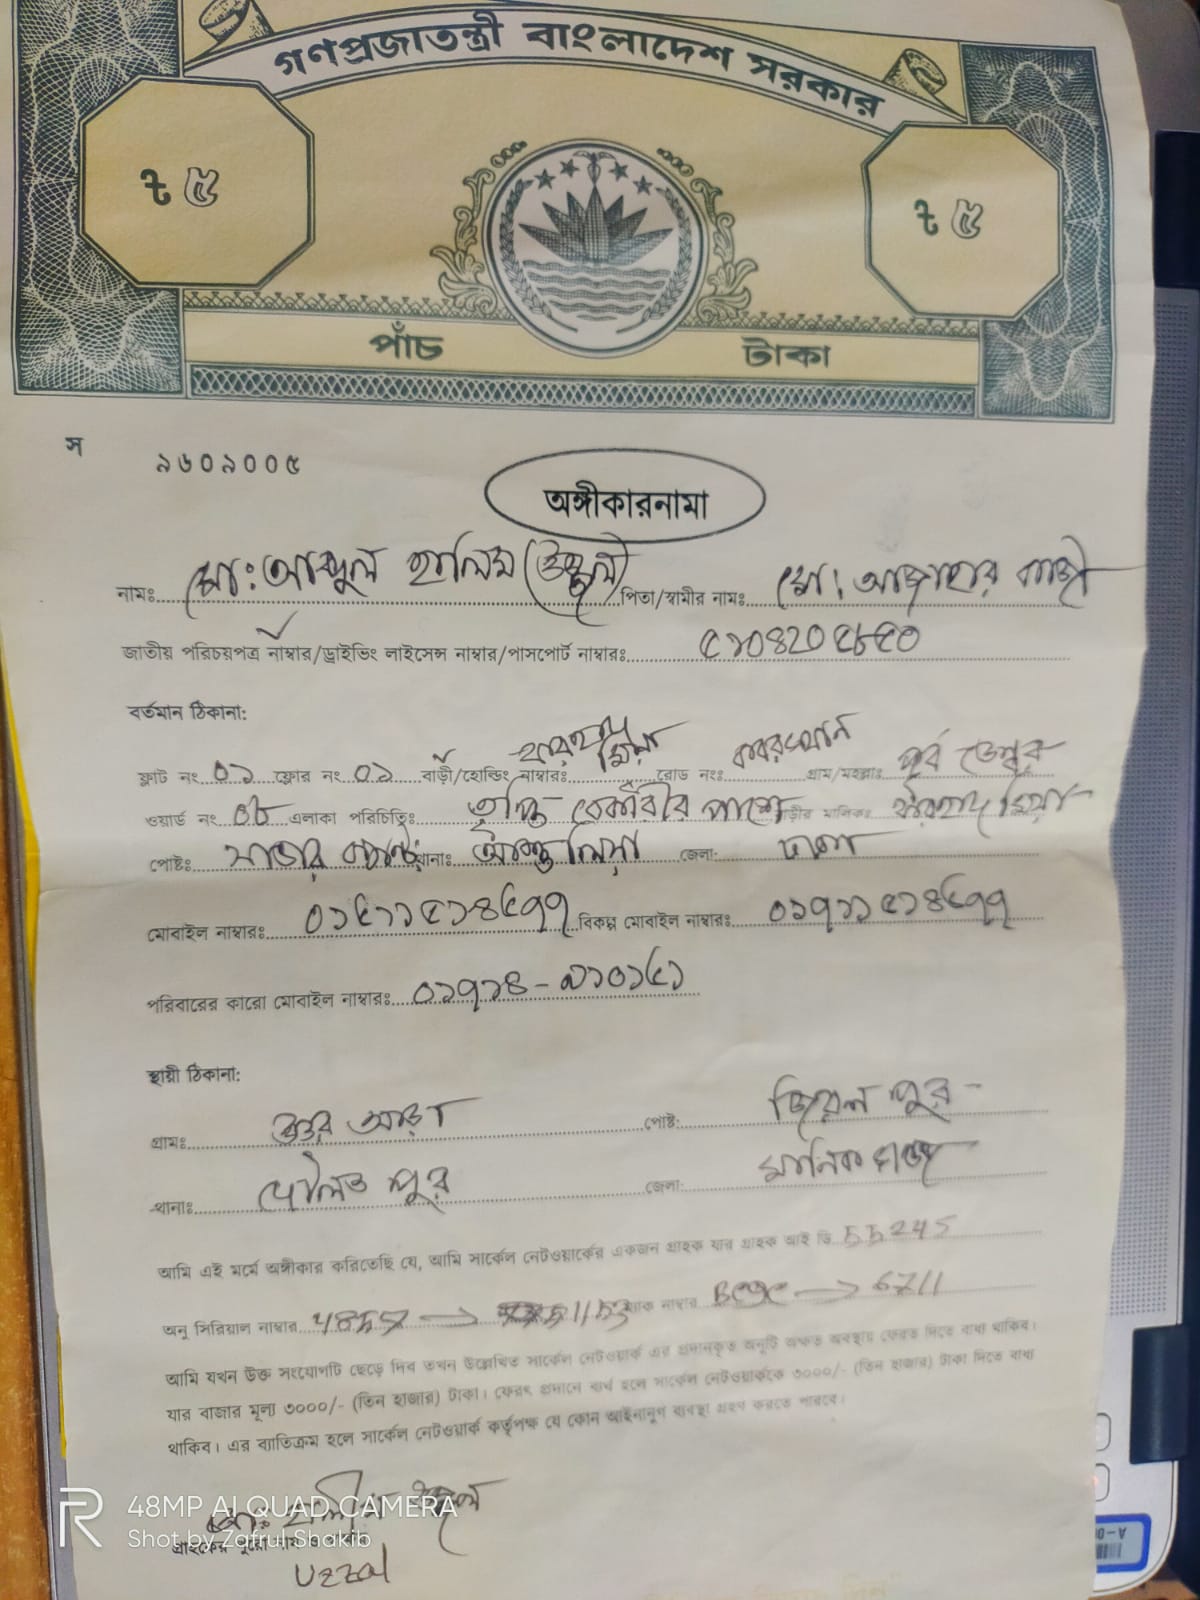 গণপ্রজাতন্ত্রী বাংলাদেশ সরকার
৳ ৫ ৳ ৫
পাঁচ টাকা
স ৯৬০৯০০৫
অঙ্গীকারনামা
নামঃ মো: আব্দুল হালিম (উজ্জ্বল) পিতা/স্বামীর নামঃ মো: আজাহার কাজী
জাতীয় পরিচয়পত্র নাম্বার/ড্রাইভিং লাইসেন্স নাম্বার/পাসপোর্ট নাম্বারঃ
বর্তমান ঠিকানা:
ফ্লাট নং ০১ ফ্লোর নং ০১ বাড়ী/হোল্ডিং নাম্বারঃ মিয়া রোড নং: কবরস্থান গ্রাম/মহল্লাঃ পূর্ব
ওয়ার্ড নং ০৮ এলাকা পরিচিতিঃ তৃপ্তি বেকারির পাশে বাড়ীর মালিকঃ ফরহাদ মিয়া
পোষ্টঃ সাভার থানাঃ আশুলিয়া জেলা: ঢাকা
মোবাইল নাম্বারঃ বিকল্প মোবাইল নাম্বারঃ
পরিবারের কারো মোবাইল নাম্বারঃ
স্থায়ী ঠিকানা:
গ্রামঃ পোষ্ট: জিয়নপুর
থানাঃ দৌলতপুর জেলা: মানিকগঞ্জ
আমি এই মর্মে অঙ্গীকার করিতেছি যে, আমি সার্কেল নেটওয়ার্কের একজন গ্রাহক যার গ্রাহক আই ডি 55245
অনু সিরিয়াল নাম্বার ম্যাক নাম্বার 6711
আমি যখন উক্ত সংযোগটি ছেড়ে দিব তখন উল্লেখিত সার্কেল নেটওয়ার্ক এর প্রদানকৃত অনুটি অক্ষত অবস্থায় ফেরত দিতে বাধ্য থাকিব।
যার বাজার মূল্য ৩০০০/- (তিন হাজার) টাকা। ফেরৎ প্রদানে ব্যর্থ হলে সার্কেল নেটওয়ার্ককে ৩০০০/- (তিন হাজার) টাকা দিতে বাধ্য
থাকিব। এর ব্যাতিক্রম হলে সার্কেল নেটওয়ার্ক কর্তৃপক্ষ যে কোন আইনানুগ ব্যবস্থা গ্রহণ করতে পারবে।
48MP AI QUAD CAMERA
Shot by Zafrul Shakib
গ্রাহকের
Uzzal